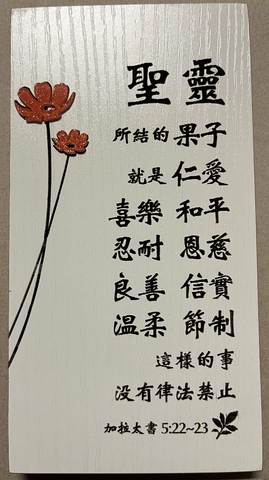 聖靈
所結的果子
就是仁愛
喜樂 和平
忍耐 恩慈
良善 信實
溫柔 節制
這樣的事
没有律法禁止
加拉太書 5:22~23